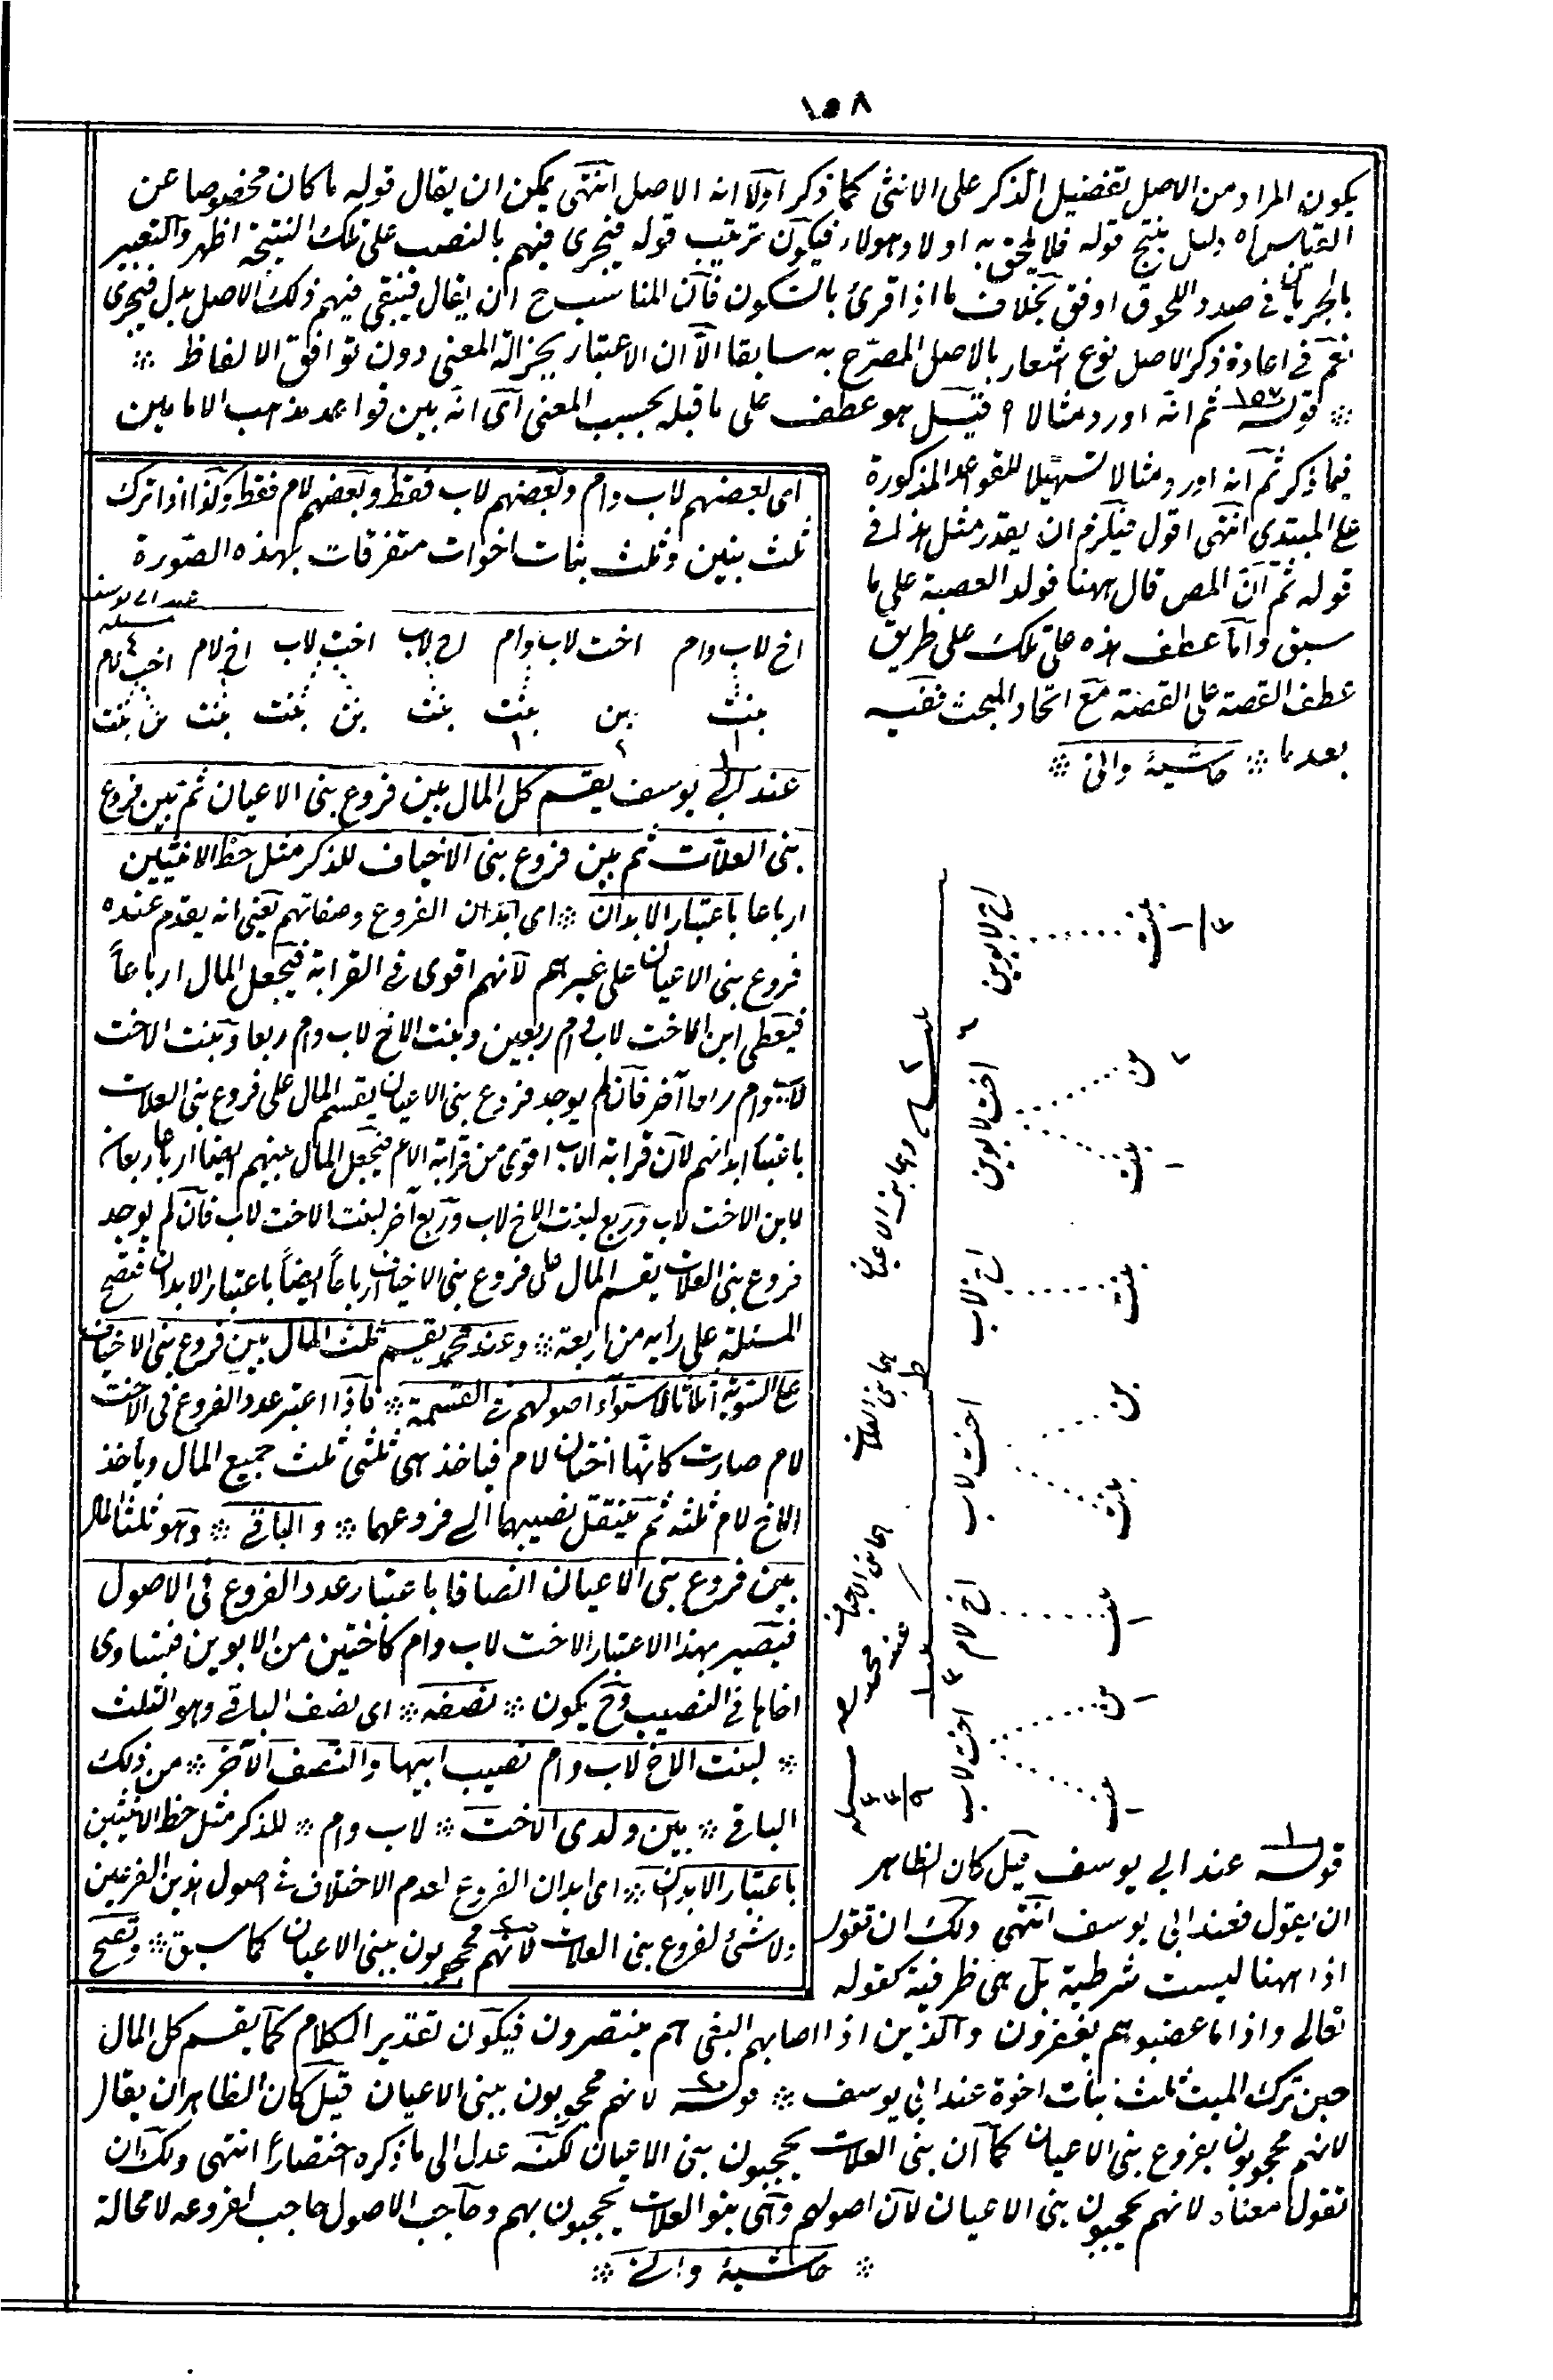 ١٥٨
يكون المراد من الاصل تفضيل الذكر على الانثى كما ذكر اولا انه الاصل انتهى يمكن ان يقال قوله ما كان مخصوصا عن
القياس اه دليل ينتج قوله فلا يلحق به اولاد هولاء فيكون ترتيب قوله فيجرى فيهم بالنصب على تلك النتيجة اظهر والتعبير
بالجريان فى صدد اللحوق اوفق بخلاف ما اذا قرئ بالسكون فان المناسب ح ان يقال فيبقى فيهم ذلك الاصل بدل فيجرى
نعم فى اعادة ذكر الاصل نوع اشعار بالاصل المصرح به سابقا الا ان الاعتبار بجزالة المعنى دون توافق الالفاظ
قوله ١٥٧ ثم انه اورد مثالا ٩ قيل هو عطف على ما قبله بحسب المعنى اى انه بين قواعد مذهب الامامين
فيما ذكر ثم انه اورد مثالا تسهيلا للقواعد المذكورة
على المبتدى انتهى اقول فيلزم ان يقدر مثل هذا فى
قوله ثم ان المص قال ههنا فولد العصبة على ما
سبق واما عطف هذه على تلك على طريق
عطف القصة على القصة مع اتحاد المبحث ففيه
بعد ما حاشية وانى
اى بعضهم لاب وام وبعضهم لاب فقط وبعضهم لام فقط وكذا اذا ترك
ثلث بنين وثلث بنات اخوات متفرقات بهذه الصورة
عند ابى يوسف
مسئلة ٤
اخ لاب وام اخت لاب وام اخ لاب اخت لاب اخ لام اخت لام
بنت بن بنت بنت بن بنت بنت بن بنت
١ ٢ ١
عند ابى يوسف يقسم كل المال بين فروع بنى الاعيان ثم بين فروع
بنى العلات ثم بين فروع بنى الاخياف للذكر مثل حظ الانثيين
ارباعا باعتبار الابدان اى ابدان الفروع وصفاتهم يعنى انه يقدم عنده
فروع بنى الاعيان على غيرهم لانهم اقوى فى القرابة فيجعل المال ارباعا
فيعطى ابن الاخت لاب وام ربعين وبنت الاخ لاب وام ربعا وبنت الاخت
لاب وام ربعا آخر فان لم يوجد فروع بنى الاعيان يقسم المال على فروع بنى العلات
باعتبار ابدانهم لان قرابة الاب اقوى من قرابة الام فيجعل المال بينهم ايضا ارباعا ربعان
لابن الاخت لاب وربع لبنت الاخ لاب وربع آخر لبنت الاخت لاب فان لم يوجد
فروع بنى العلات يقسم المال على فروع بنى الاخياف ارباعا ايضا باعتبار الابدان فتصح
المسئلة على رأيه من اربعة وعند محمد يقسم ثلث المال بين فروع بنى الاخياف
على السوية اثلاثا لاستواء اصولهم فى القسمة فاذا اعتبر عدد الفروع فى الاخت
لام صارت كانها اختان لام فياخذ هى ثلثى ثلث جميع المال وياخذ
الاخ لام ثلثه ثم ينتقل نصيبهما الى فروعهما والباقى وهو ثلثا المال
بين فروع بنى الاعيان انصافا باعتبار عدد الفروع فى الاصول
فيصير بهذا الاعتبار الاخت لاب وام كاختين من الابوين فتساوى
اخاها فى النصيب وح يكون نصفه اى نصف الباقى وهو الثلث
لبنت الاخ لاب وام نصيب ابيها والنصف الآخر من ذلك
الباقى بين ولدى الاخت لاب وام للذكر مثل حظ الانثيين
باعتبار الابدان اى ابدان الفروع لعدم الاختلاف فى اصول هذين الفرعين
ولا شئ لفروع بنى العلات لانهم محجوبون ببنى الاعيان كما سبق وتصح
اخ لابوين
بنت
٣/١
اخت لابوين
بن ٢
بنت ١
اخ لاب
بنت
اخت لاب
بن
بنت
اخ لام
بنت ١
اخت لاب
بن ١
بنت ١
عند محمد
قوله ١ عند ابى يوسف قيل كان الظاهر
ان يقول فعند ابى يوسف انتهى ولك ان تقول
اذا ههنا ليست شرطية بل هى ظرفية كقوله
تعالى واذا ما غضبوا هم يغفرون والذين اذا اصابهم البغى هم ينتصرون فيكون تقدير الكلام كما يقسم كل المال
حين ترك الميت ثلث بنات اخوة عند ابى يوسف قوله ٢ لانهم محجوبون ببنى الاعيان قيل كان الظاهر ان يقال
لانهم محجوبون بفروع بنى الاعيان كما ان بنى العلات يحجبون ببنى الاعيان لكنه عدل الى ما ذكره اختصارا انتهى ولك ان
تقول معناه لانهم يحجبون ببنى الاعيان لان اصولهم وهى بنو العلات يحجبون بهم وحاجب الاصول حاجب لفروعه لا محالة
حاشية وانى